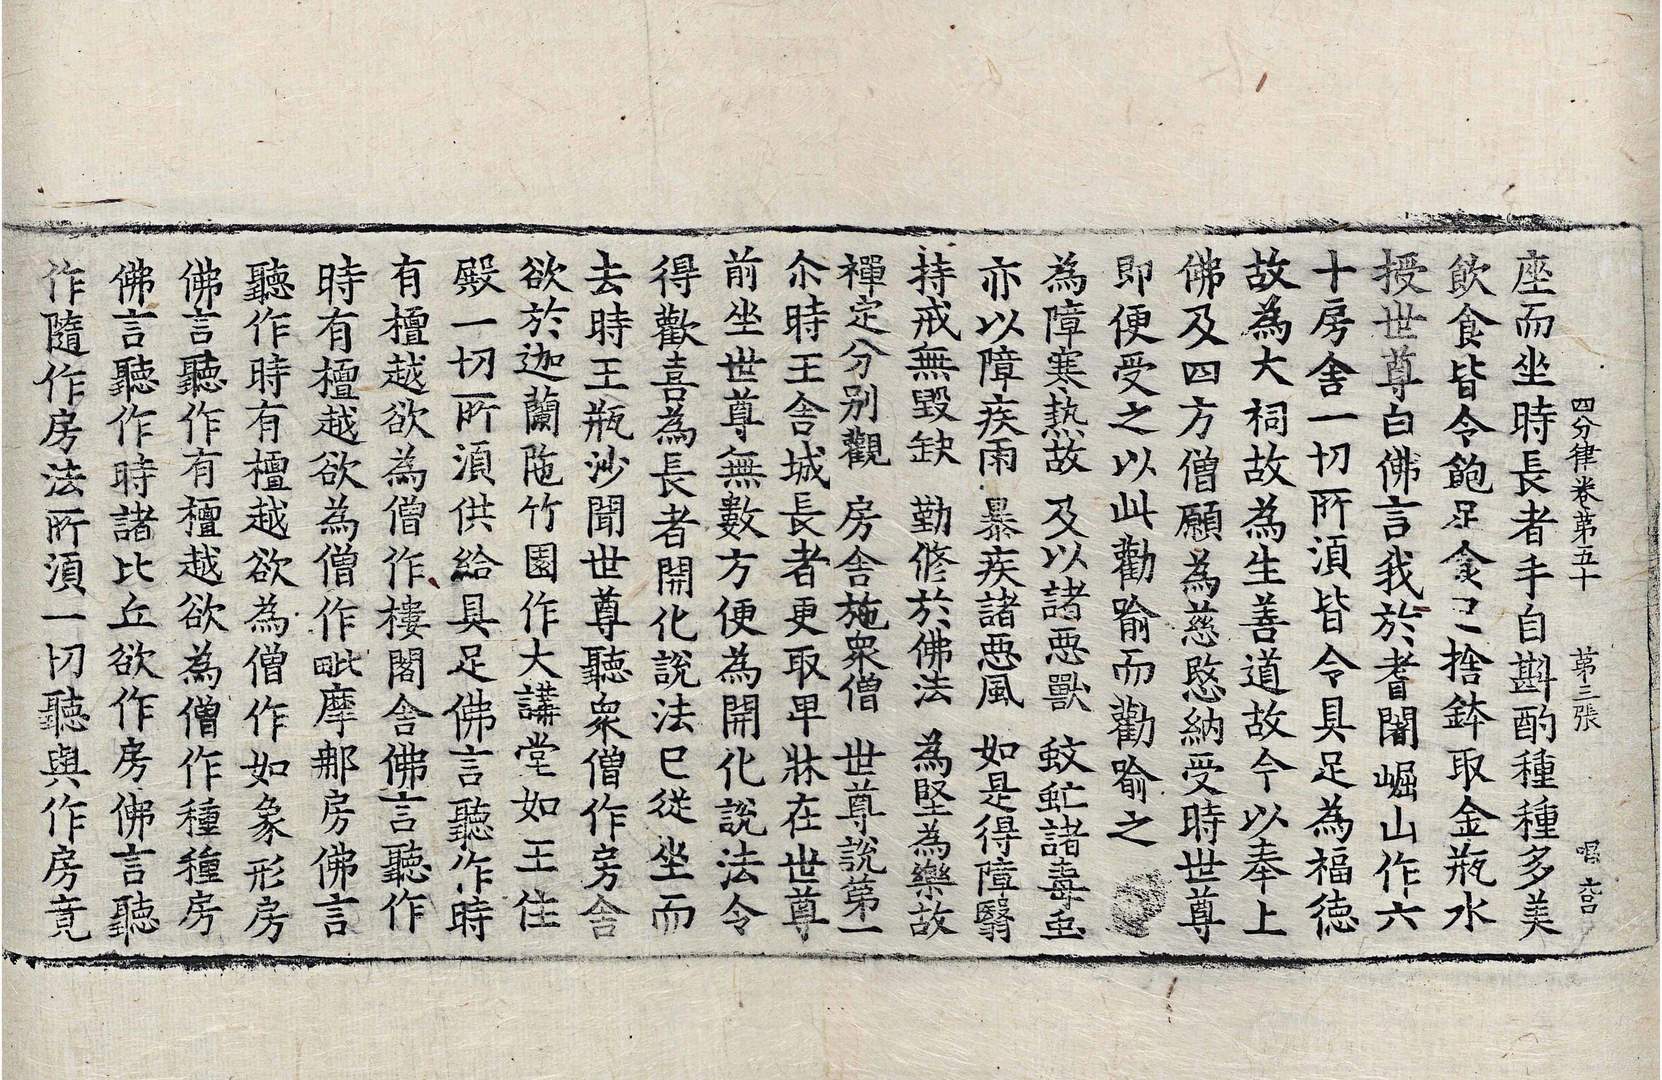 四分律卷第五十　第三張　唱　
座而坐時長者手自斟酌種種多美
飲食皆令飽足食已捨鉢取金瓶水
授世尊白佛言我於耆闍崛山作六
十房舍一切所須皆令具足為福德
故為大祠故為生善道故今以奉上
佛及四方僧願為慈愍納受時世尊
即便受之以此勸喻而勸喻之
為障寒熱故　及以諸惡獸　蚊虻諸毒虫
亦以障疾雨　暴疾諸惡風　如是得障翳
持戒無毀缺　勤修於佛法　為堅為樂故
禪定分別觀　房舍施眾僧　世尊說第一
尒時王舍城長者更取卑牀在世尊
前坐世尊無數方便為開化說法令
得歡喜為長者開化說法已從坐而
去時王瓶沙聞世尊聽眾僧作房舍
欲於迦蘭陁竹園作大講堂如王住
殿一切所須供給具足佛言聽作時
有檀越欲為僧作樓閣舍佛言聽作
時有檀越欲為僧作毗摩那房佛言
聽作時有檀越欲為僧作如象形房
佛言聽作有檀越欲為僧作種種房
佛言聽作時諸比丘欲作房佛言聽
作隨作房法所須一切聽與作房竟